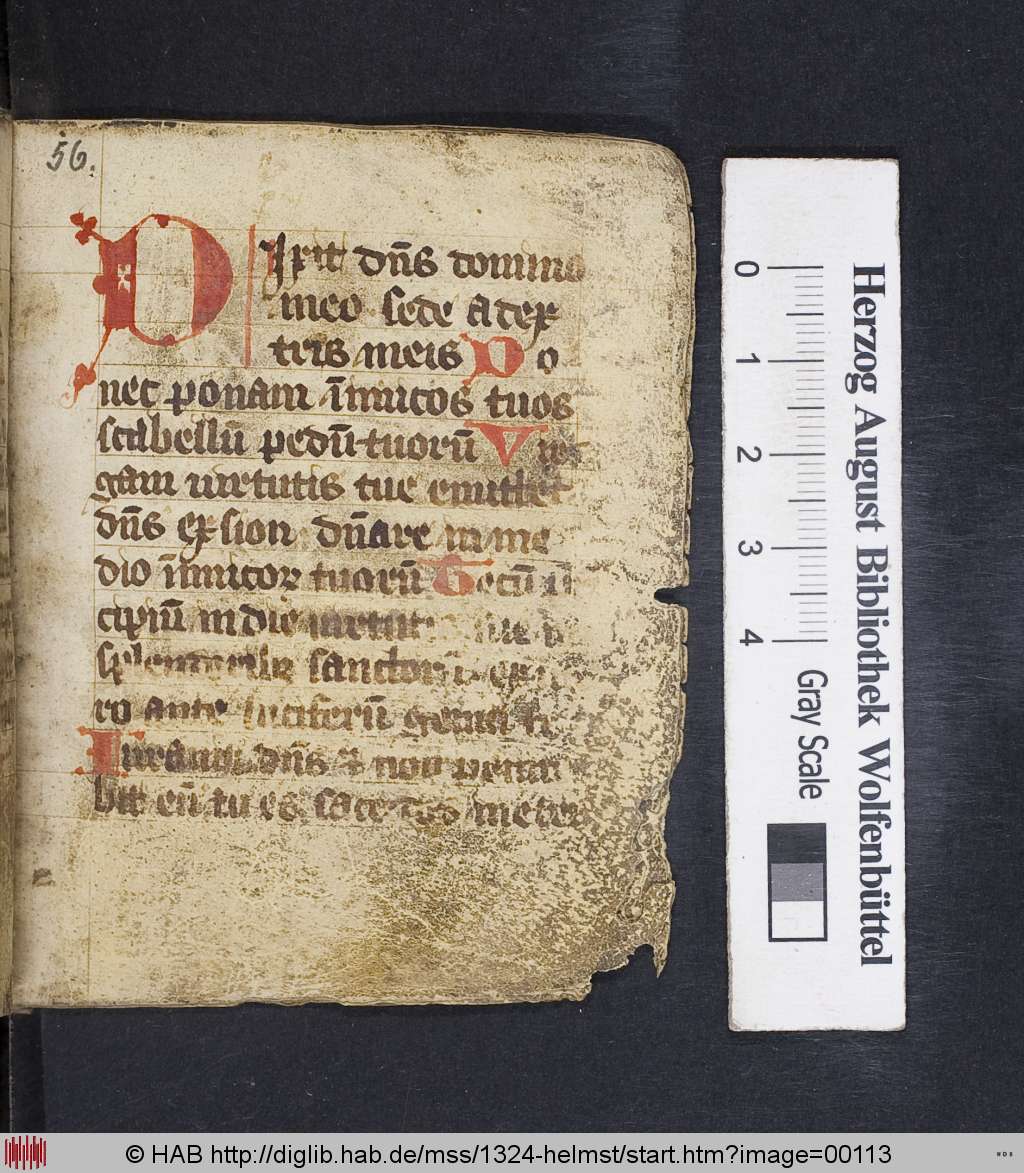 56.
Dixit dn̄s domino
meo sede a dex
tris meis Do
nec ponam īmicos tuos
scabellū pedū tuorū Vir
gam virtutis tue emittet
dn̄s ex sion dn̄are in me
dio īmicoꝝ tuorū Tecū
cipiū in die virtut
splendoribꝫ sanctorū ex
ro ante luciferū genui te
Iurauit dn̄s ⁊ non penite
bit eū tu es sacerdos in eter
Herzog August Bibliothek Wolfenbüttel
0 1 2 3 4
Gray Scale
© HAB http://diglib.hab.de/mss/1324-helmst/start.htm?image=00113